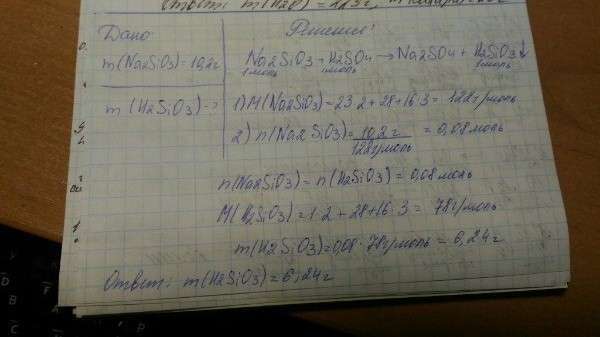 Ответ: m(
Дано Решение:
m(Na2SiO3)=10,2г
Na2SiO3+H2SO4→Na2SO4+H2SiO3↓
1моль 1моль 1моль
m(H2SiO3)-?
1) M(Na2SiO3)=23·2+28+16·3=122г/моль
2) n(Na2SiO3)=10,2г/122г/моль=0,08моль
n(Na2SiO3)=n(H2SiO3)=0,08моль
M(H2SiO3)=1·2+28+16·3=78г/моль
m(H2SiO3)=0,08·78г/моль=6,24г
Ответ: m(H2SiO3)=6,24г